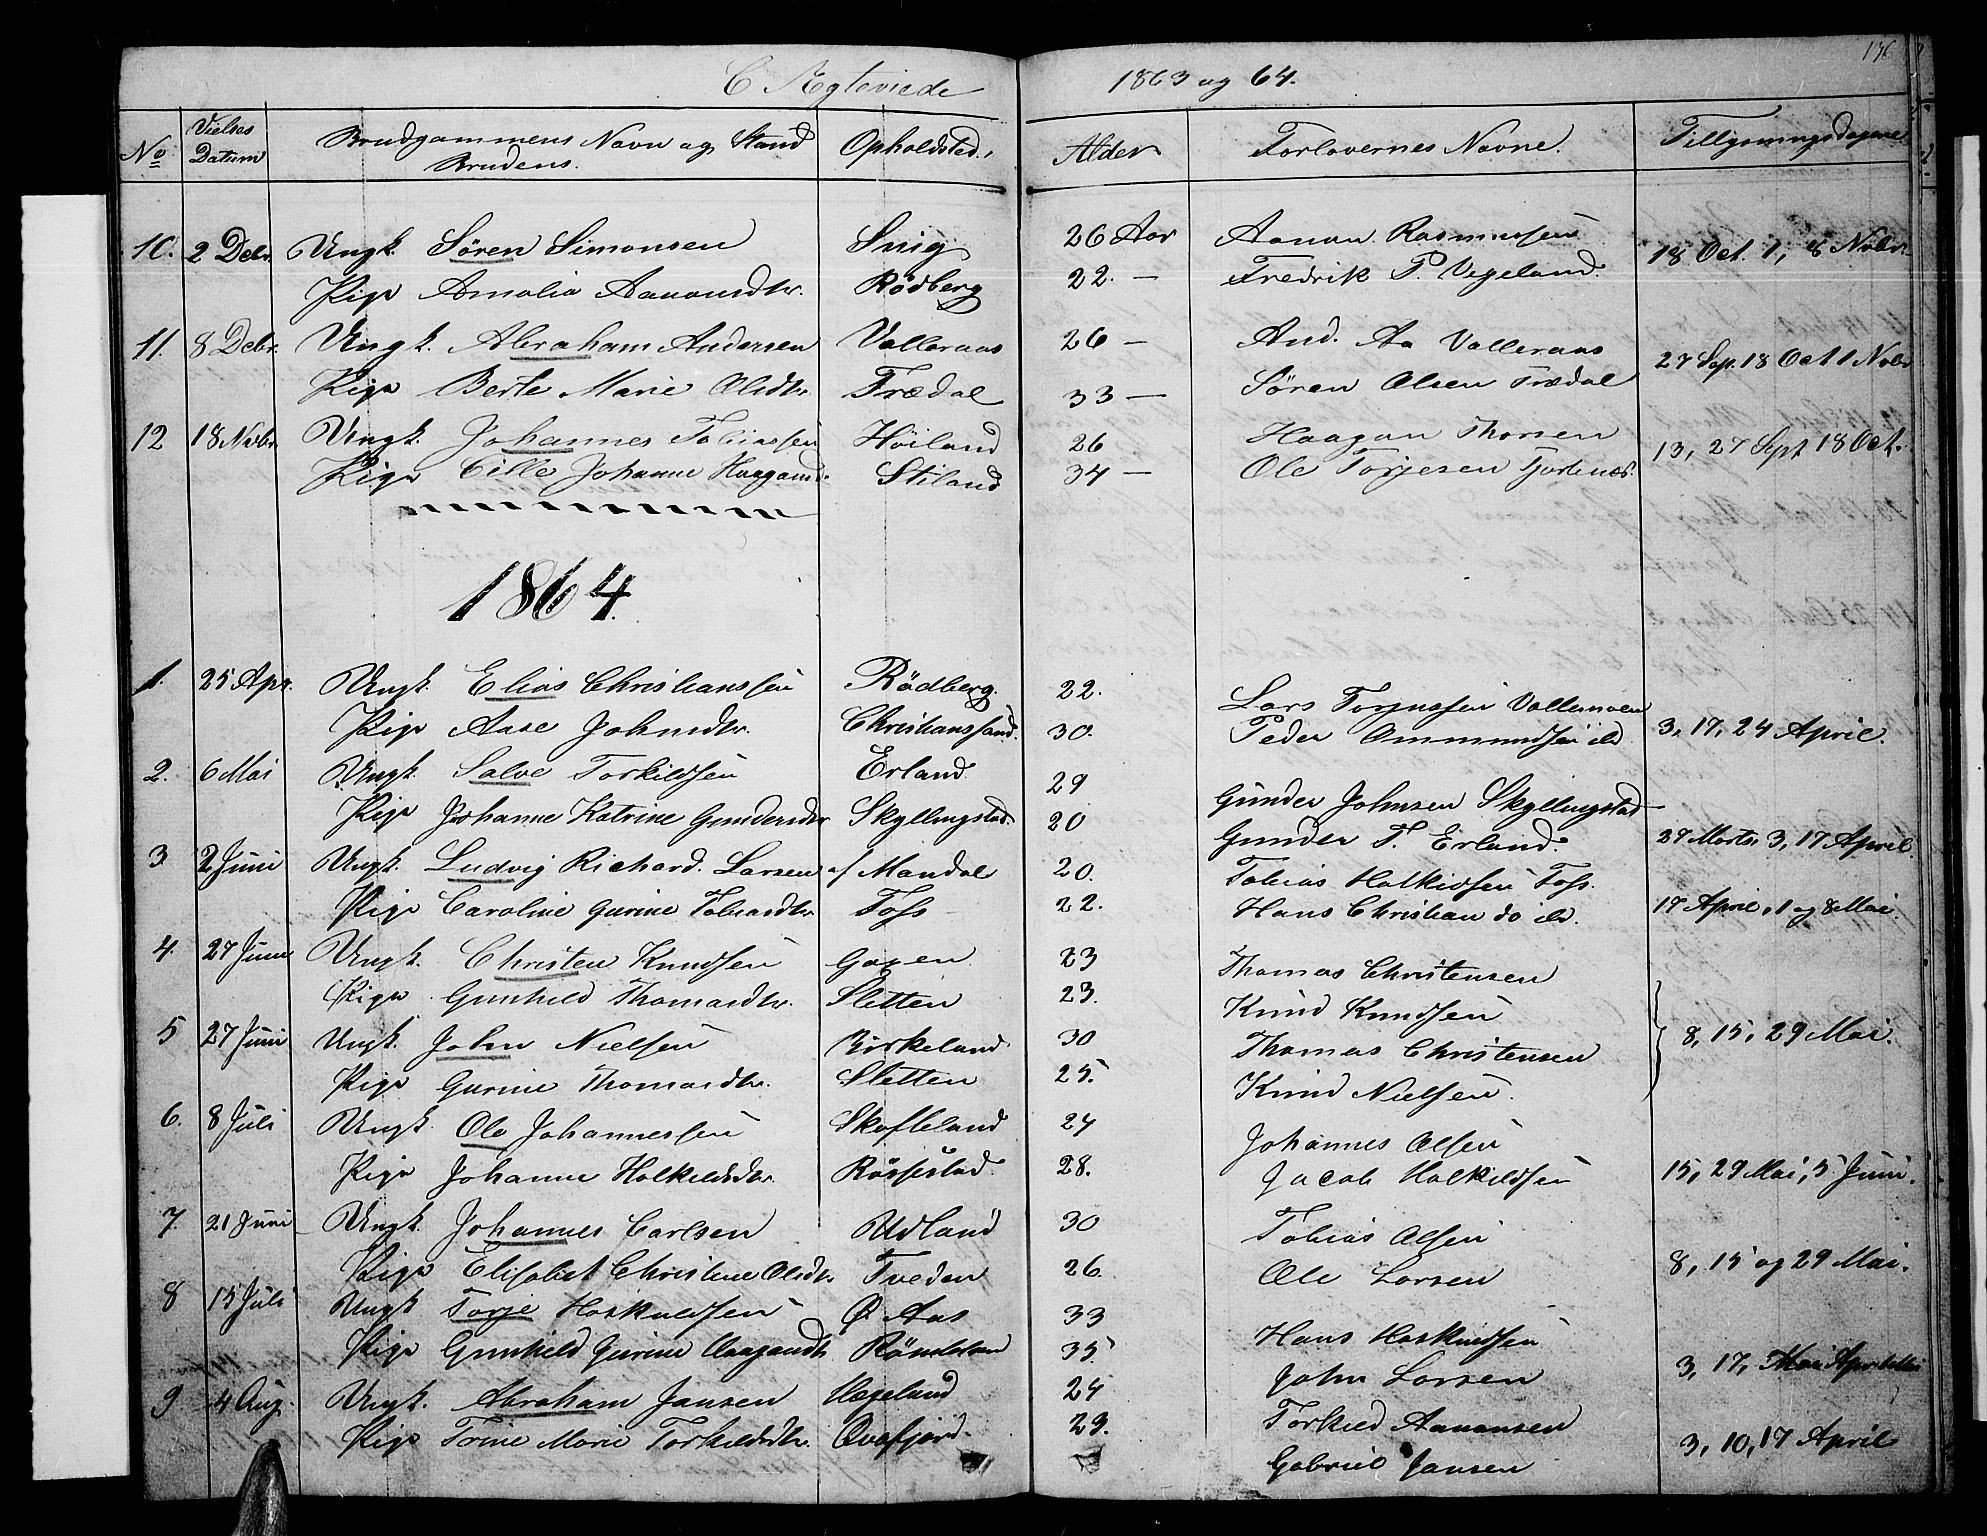 C Ægteviede 1863 og 64. 136
No Vielses Datum Brudgommens Navn og Stand Brudens. Opholdsted. Alder Forlovernes Navne. Tillysningsdagene
10. 2 Debr. Ungk. Søren Simonsen Snig 26 Aar Aanon Rasmussen 18 Oct. 1, 8 Nobr.
Pige Amalia Aanonsdtr. Rödberg 22. — Fredrik P. Vegeland.
11. 8 Debr. Ungk. Abraham Andersen Valleraas 26 — And. Aa Valleraas 27 Sep. 18 Oct 1 Nobr
Pige Berte Marie Olsdtr Trædal 33 — Søren Olsen Trædal
12 18 Nobr. Ungk. Johannes Tobiassen Höiland 26 Haagan Thorsen 13, 27 Sept 18 Oct.
Pige Cille Johanne Haagansd. Stiland 34 — Ole Torjesen
1864.
1. 25 Apr. Ungk. Elias Christianssen Rödberg. 22. Lars Torjussen Vallemoen 3, 17, 24 April.
Pige Aase Johnsdtr. Christianssand. 30. Peder Ommundsen ibd
2. 6 Mai Ungk. Salve Torkildsen Erland 29 Gunder Johnsen Skyllingstad
Pige Johanne Katrine Gundersdtr Skyllingstad. 20 Gunder T. Erland. 27 Marts, 3, 17 April.
3 2 Juni Ungk. Ludvig Richard. Larsen af Mandal 20. Tobias Halkidsen Foss.
Pige Caroline Gurine Tobiasdtr Foss 22. Hans Christian do ibd. 17 April, 1 og 8 Mai.
4. 27 Juni Ungk. Christen Knudsen 23 Thomas Christensen
Pige Gunhild Thomasdtr. Sletten 23. Knud Knudsen
5 27 Juni Ungk. John Nielsen Birkeland 30 Thomas Christensen 8, 15, 29 Mai.
Pige Gurine Thomasdtr. Sletten 25. Knud Nielsen.
6. 8 Juli Ungk. Ole Johannessen Skofteland 24 Johannes Olsen
Pige Johanne Halkildsdtr. Røssestad. 28. Jacob Halkildsen 15, 29 Mai, 5 Juni.
7. 21 Juni Ungk. Johannes Carlsen Udland 30 Tobias Olsen
Pige Elisabet Christine Olsdtr Tveden 26. Ole Larsen 8, 15 og 29 Mai.
8 15 Juli Ungk Torje Haskuldsen Ø Aas 33 Hans Haskuldsen
Pige Gunhild Gurine Haagansdtr 35. John Larsen 3, 17,
9 4 Aug. Ungk. Abraham Jansen Hægeland 24 Torkild Aanonsen
Pige Trine Marie Torkildsdtr. Ovafjord. 29. Gabriel Jansen 3, 10, 17 April